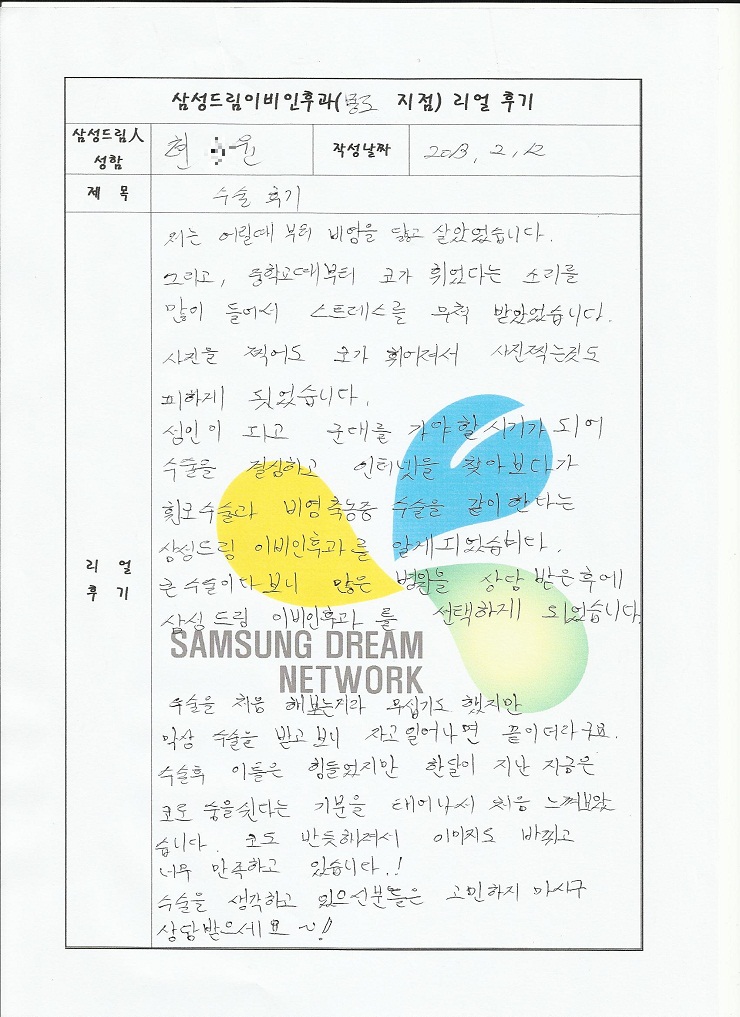 삼성드림이비인후과(목동 지점) 리얼 후기
삼성드림人 성함 현 원 작성날짜 2013, 2, 12
제 목 수술 후기
리 얼 후 기
저는 어릴때 부터 비염을 달고 살았었습니다.
그리고, 중학교때부터 코가 휘었다는 소리를
많이 들어서 스트레스를 무척 받았었습니다.
사진을 찍어도 코가 휘어져서 사진찍는것도
피하게 됬었습니다.
성인이 되고 군대를 가야할 시기가 되어
수술을 결심하고 인터넷을 찾아보다가
휜코수술과 비염축농증 수술을 같이한다는
삼성드림 이비인후과를 알게되었습니다.
큰수술이다보니 많은 병원을 상담 받은후에
삼성드림 이비인후과를 선택하게 되었습니다
SAMSUNG DREAM
NETWORK
수술을 처음 해보는지라 무섭기도 했지만
막상 수술을 받고보니 자고일어나면 끝이더라구요.
수술후 이틀은 힘들었지만 한달이 지난 지금은
코로 숨을쉰다는 기분을 태어나서 처음 느껴보았
습니다. 코도 반듯해져서 이미지도 바뀌고
너무 만족하고 있습니다.!
수술을 생각하고 있으신분들은 고민하지 마시구
상담받으세요~!!